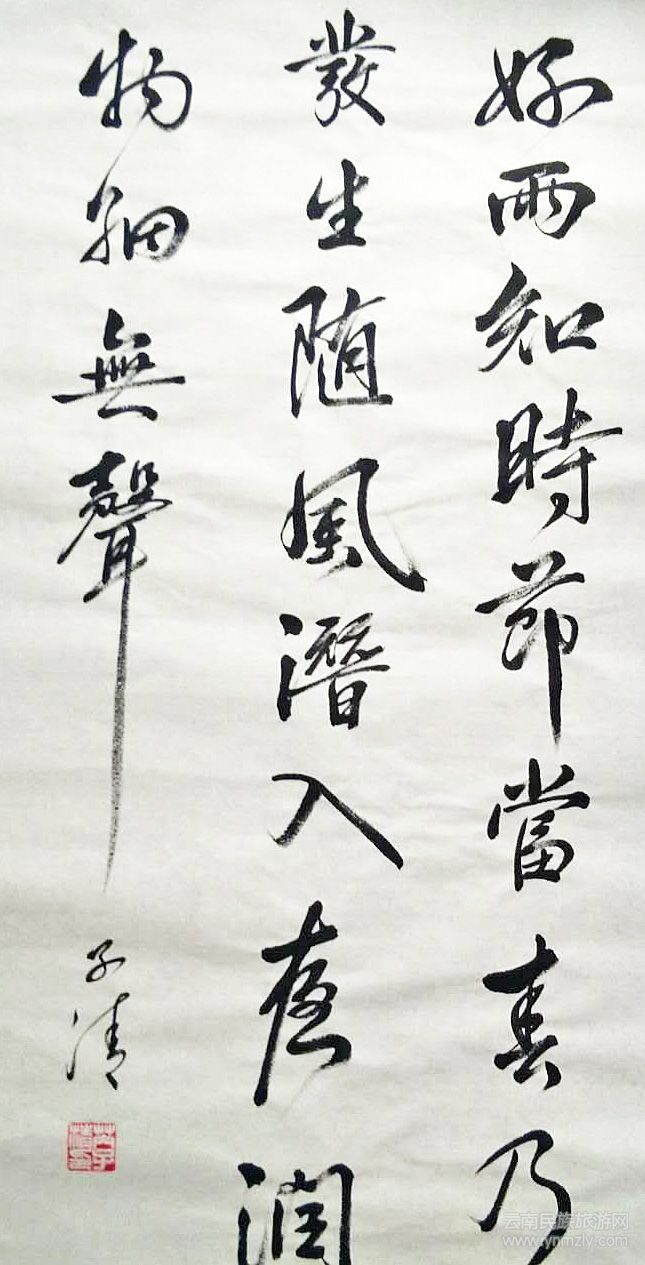 好雨知時節當春乃
發生随風潜入夜潤
物細無聲
子清
云南民族旅游网
www.ynmzly.com